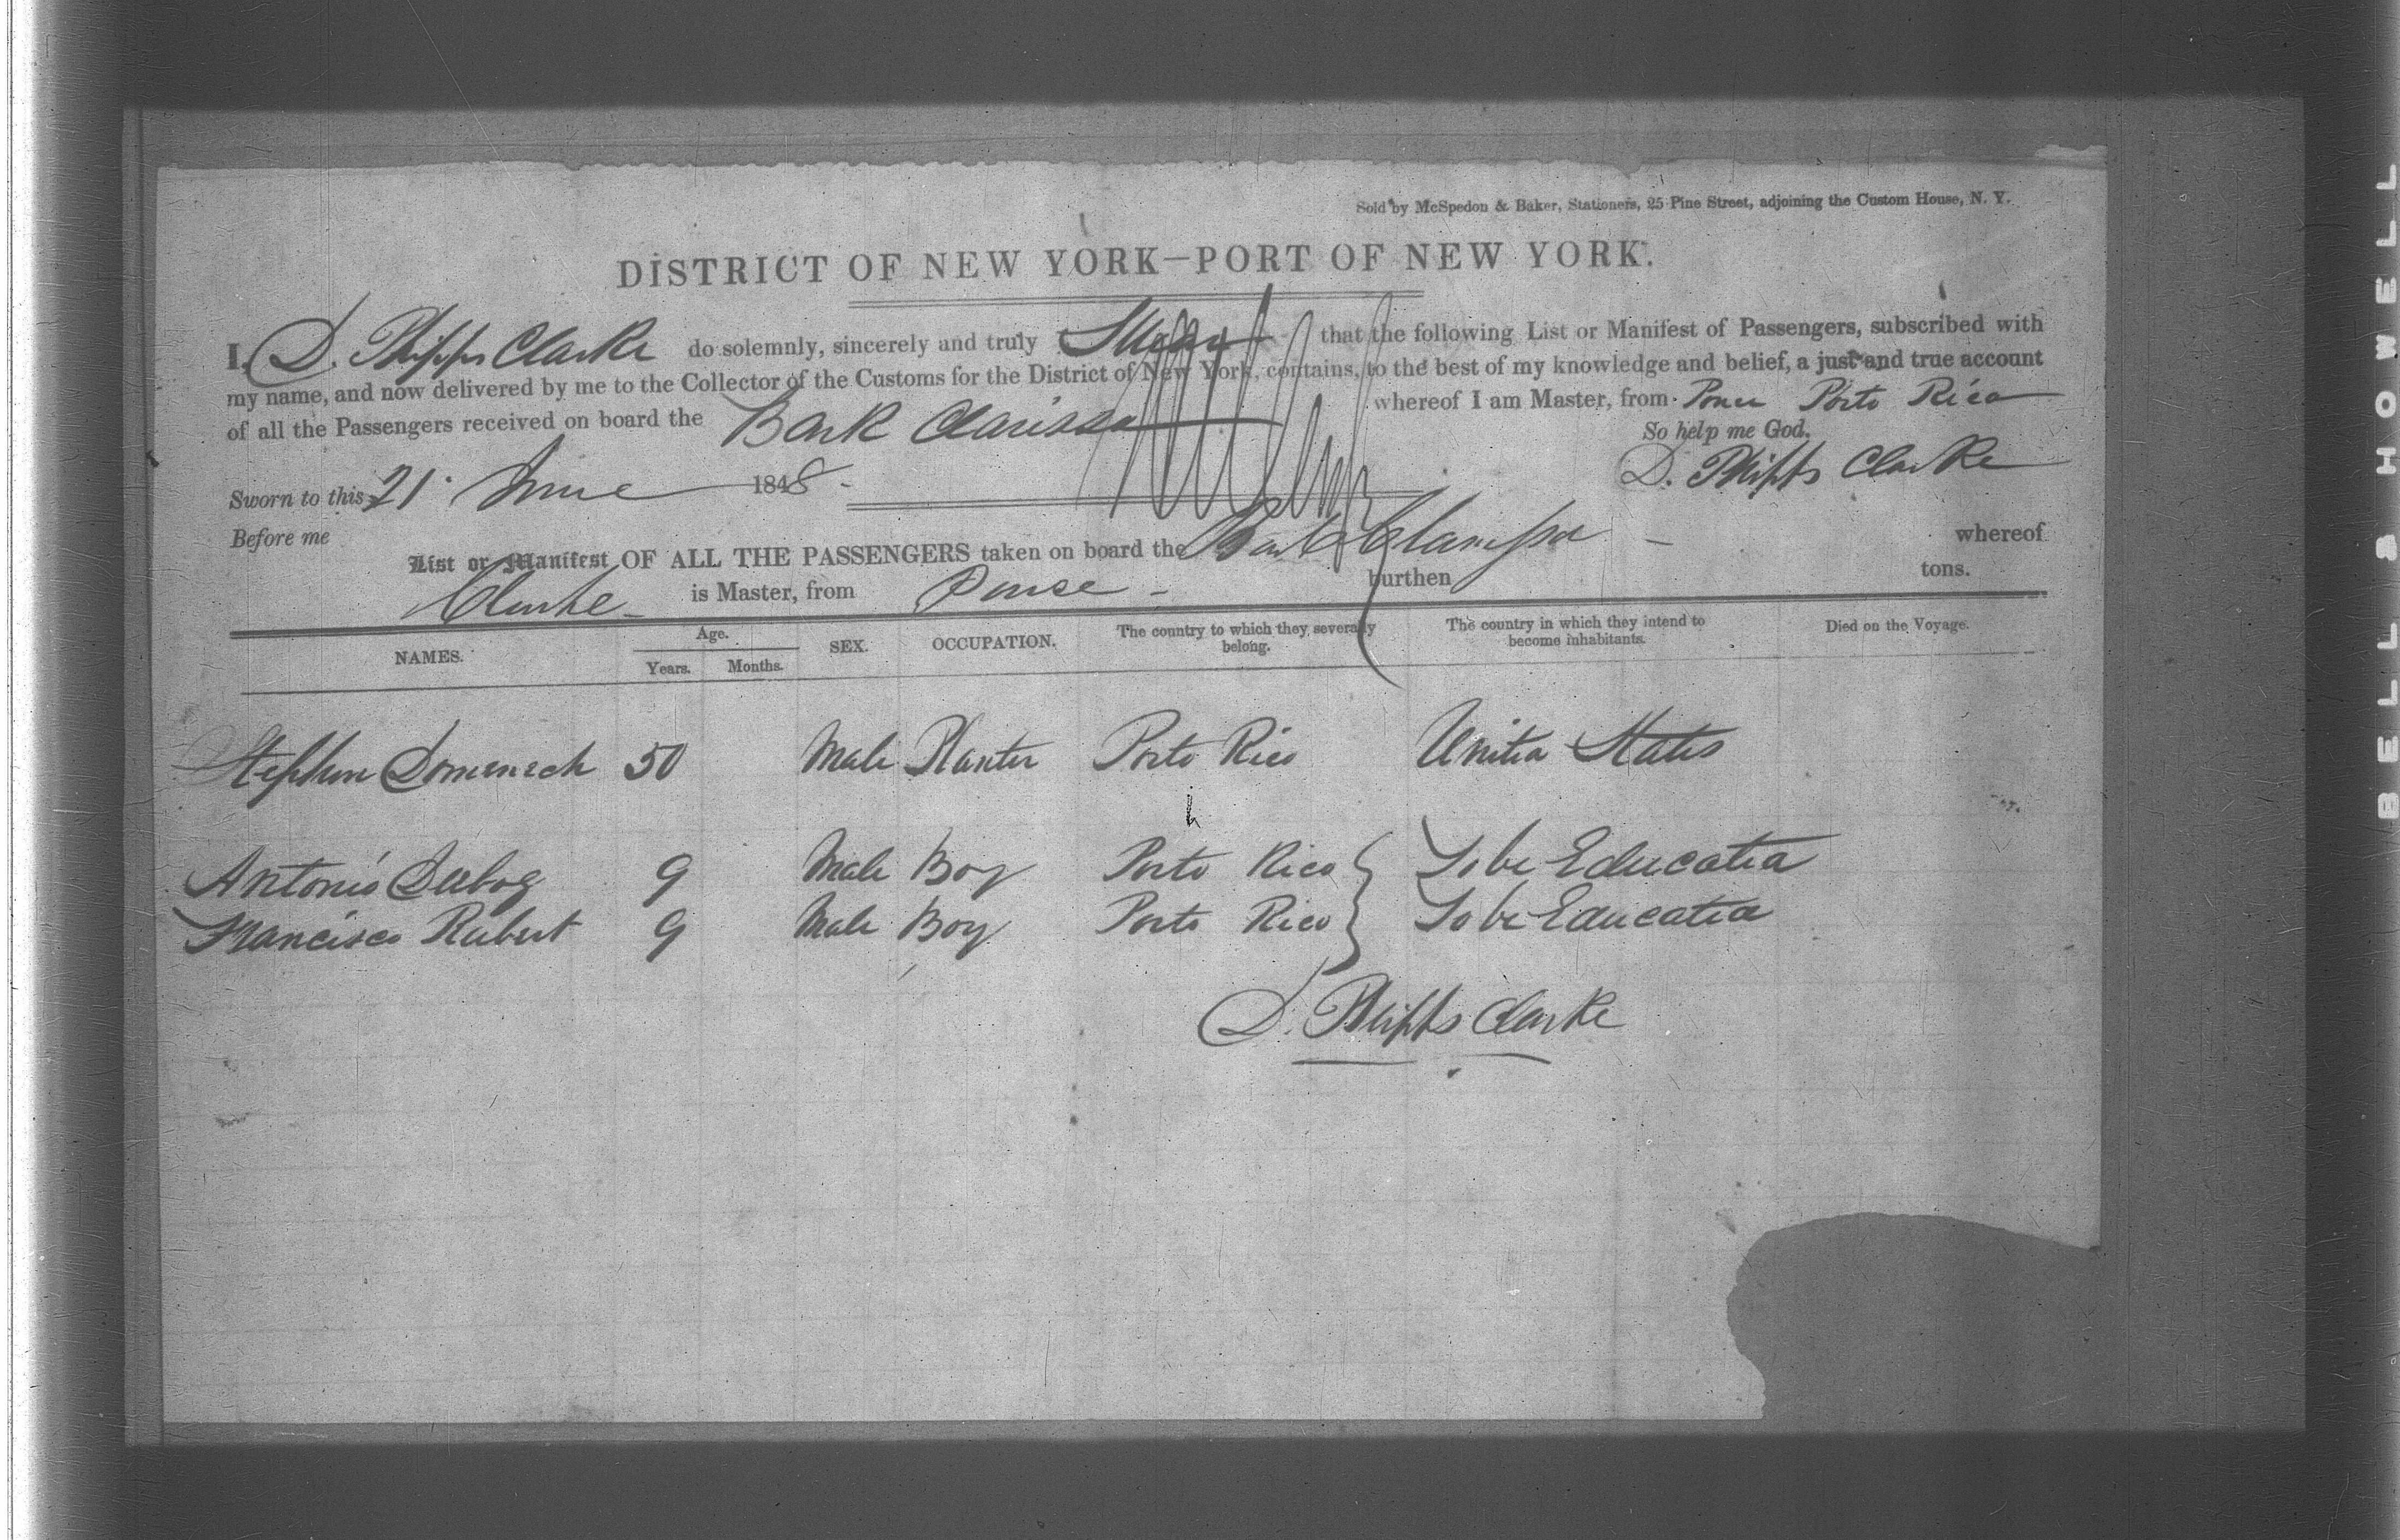 Sold by McSpedon & Baker, Stationers, 25 Pine Street, adjoining the Custom House, N. Y.
DISTRICT OF NEW YORK—PORT OF NEW YORK.
I, D. Phipps Clarke do solemnly, sincerely and truly Swear that the following List or Manifest of Passengers, subscribed with
my name, and now delivered by me to the Collector of the Customs for the District of New York, contains, to the best of my knowledge and belief, a just and true account
of all the Passengers received on board the Bark Clarissa whereof I am Master, from Ponce Porto Rico
So help me God.
Sworn to this 21 June 1848 D. Phipps Clarke
Before me
List or Manifest OF ALL THE PASSENGERS taken on board the Bark Clarissa whereof
Clarke is Master, from Ponse burthen tons.
NAMES. Age. Years. Months. SEX. OCCUPATION. The country to which they severally belong. The country in which they intend to become inhabitants. Died on the Voyage.
Stephen Domenech 50 Male Planter Porto Rico United States
Antonio 9 Male Boy Porto Rico To be Educated
Francisco Rubert 9 Male Boy Porto Rico To be Educated
D. Phipps Clarke
BELL & HOWELL